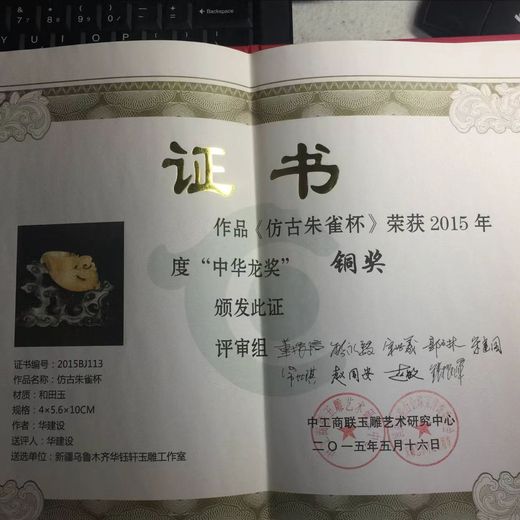 Backspace
Y U I O P
证书
作品《仿古朱雀杯》荣获 2015 年
度“中华龙奖” 铜奖
颁发此证
评审组
证书编号:2015BJ113
作品名称:仿古朱雀杯
材质:和田玉
规格:4×5.6×10CM
作者:华建设
送评人:华建设
送选单位:新疆乌鲁木齐华钰轩玉雕工作室
中工商联玉雕艺术研究中心
二〇一五年五月十六日